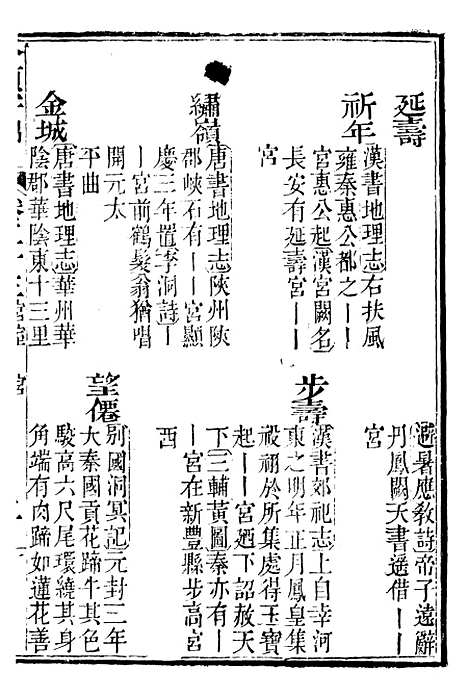 延壽
祈年
漢書地理志右扶風
雍秦惠公都之丨丨
宮惠公起漢宮闕名
長安有延壽宮丨丨
宮
繡嶺
唐書地理志陝州陝
郡峽石有丨丨宮顯
慶三年置李洞詩丨
丨宮前鶴髮翁猶唱
開元太
平曲
金城
唐書地理志華州華
陰郡華陰東十三里
避暑應教詩帝子遠辭
丹鳳闕天書遙借丨丨
宮
步壽
漢書郊祀志上自幸河
東之明年正月鳳皇集
祋祤於所集處得玉寶
起丨丨宮廼下詔赦天
下三輔黃圖秦亦有丨
丨宮在新豐縣步高宮
西
望僊
別國洞冥記元封三年
大秦國貢花蹄牛其色
駮高六尺尾環繞其身
角端有肉蹄如蓮花善